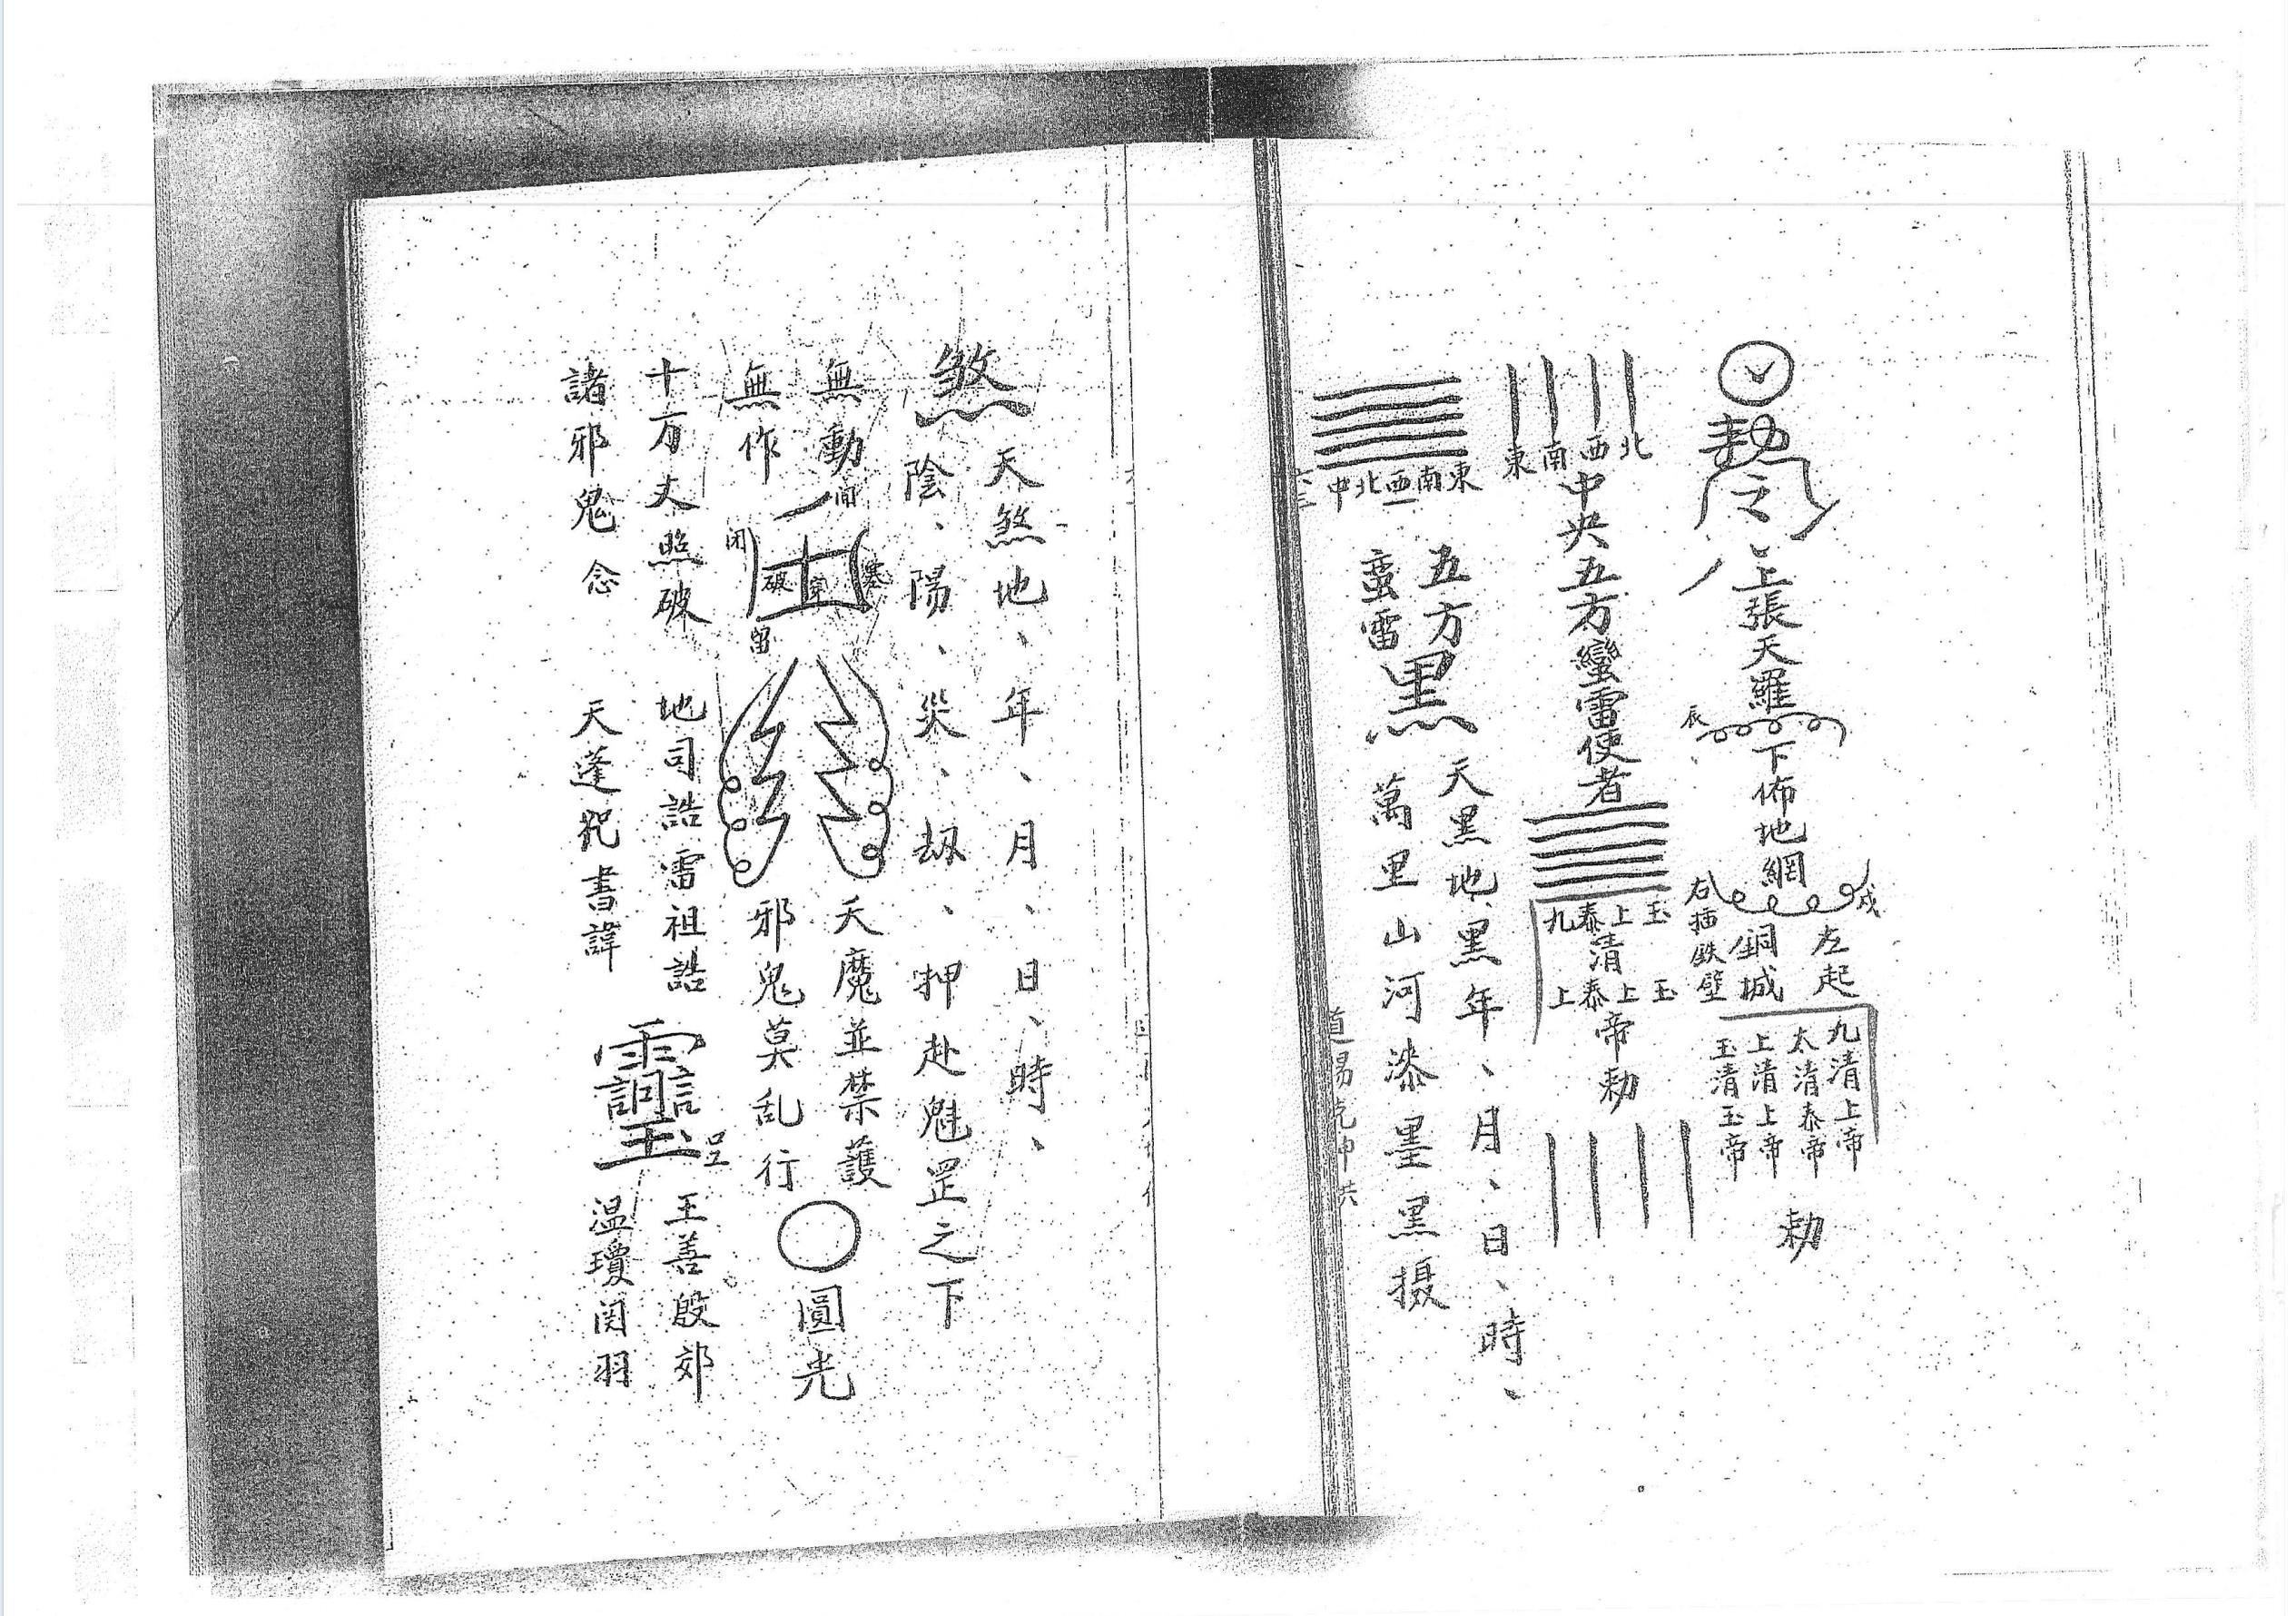 勅令
上張天羅
辰
下佈地網
戌
左起
銅城
右插鉄壁
九清上帝
太清泰帝
上清上帝
玉清玉帝
勅
北
西
南
東
中央五方蠻雷使者
玉
上
泰
九
清
玉
上
泰
上
帝勅
東
南
西
北
中
五方
蛮雷
黑
天黑地黑年、月、日、時、
萬里山河漆墨黑摄
煞
天煞地、年、月、日、時、
陰、陽、災、劫、押赴魁罡之下
無動
無作
闭
破
留
天魔並禁護
邪鬼莫乱行
圓光
十方丈照破
諸邪鬼念
地司誥雷祖誥
天蓬祝書諱
王善殷郊
温瓊関羽